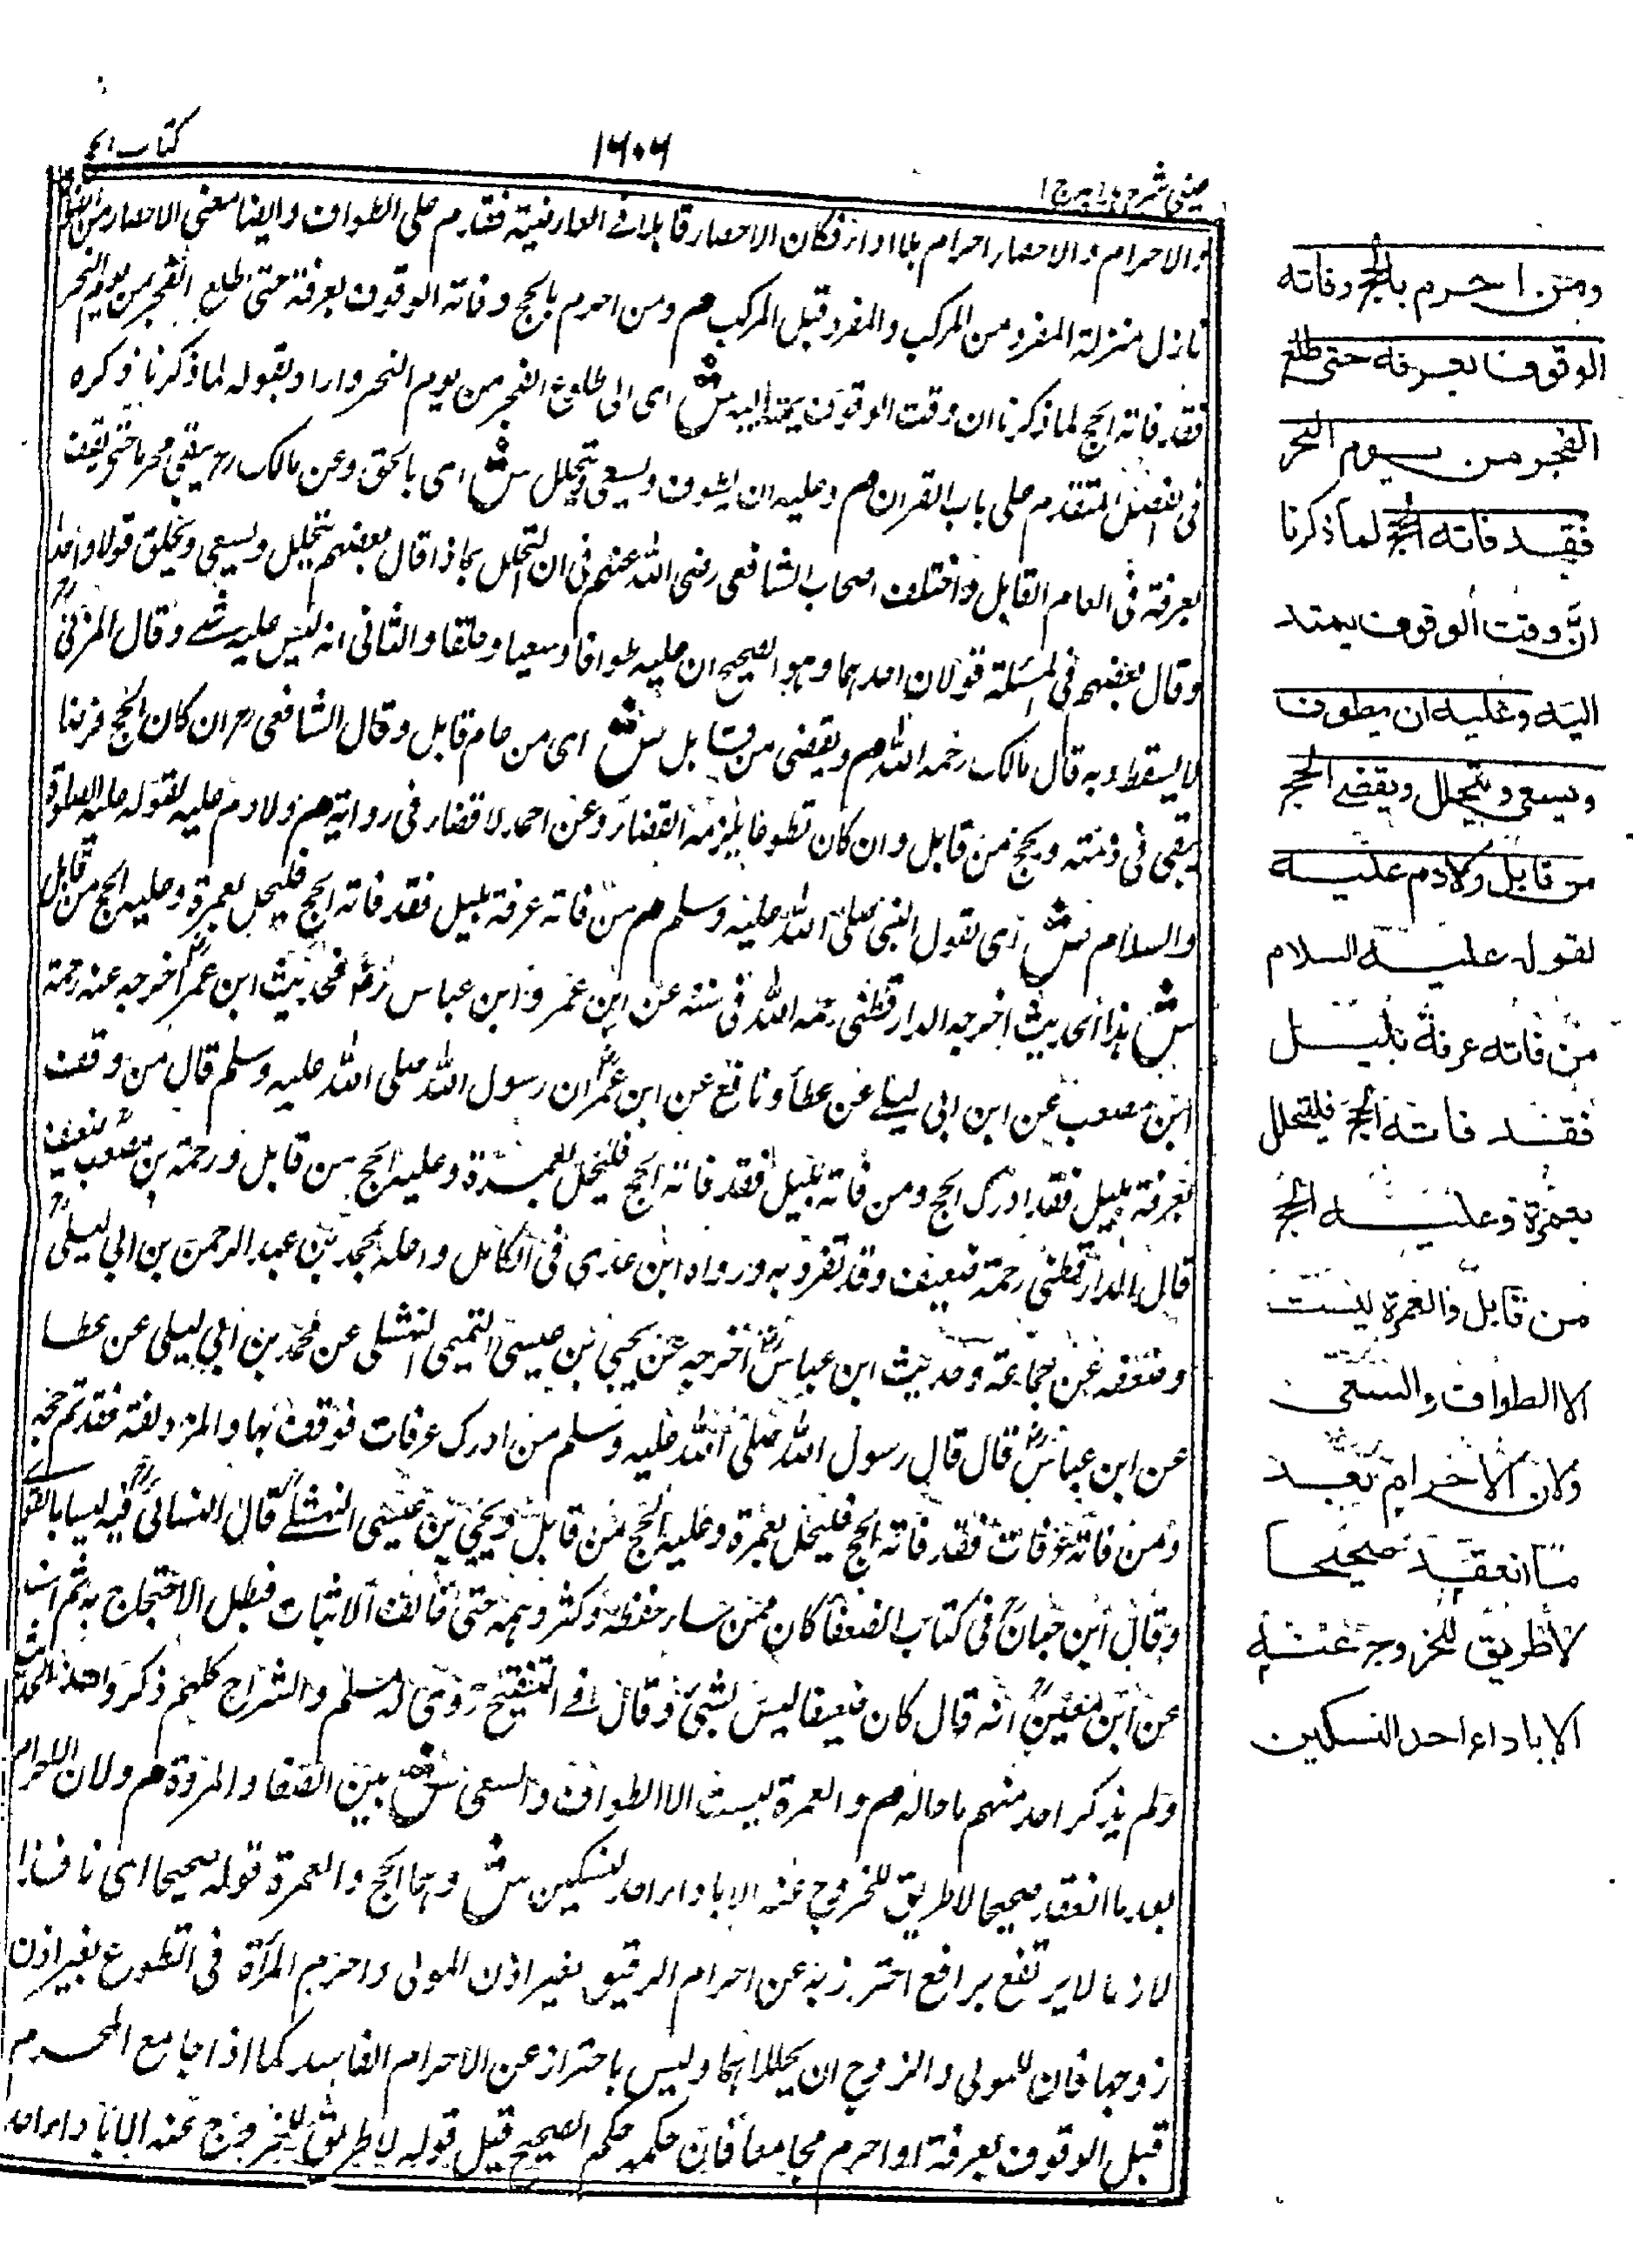 كتاب الحج
١٦٠٦
عینی شرح ہدایہ ج ١
والاحرام والاحصار احرام بلا اداء فكان الاحصار قابلا فى العارضية فقدم على الطواف وايضا معنى الاحصار من
نازل منزلة المفرد من المركب والمفرد قبل المركب هم ومن احرم بالحج وفاته الوقوف بعرفة حتى طلع الفجر من يوم النحر
فقد فاته الحج لما ذكرنا ان وقت الوقوف يمتد اليه ش اى الى طلوع الفجر من يوم النحر واراد بقوله لما ذكرنا ذكره
فى الفصل المتقدم على باب القران هم وعليه ان يطوف ويسعى ويتحلل ش اى بالحلق وعن مالك رح يبقى محرما حتى يقف
بعرفة فى العام القابل واختلف اصحاب الشافعى رضى الله عنهم فى ان التحلل بماذا قال بعضهم يتحلل ويسعى ويحلق قولا واحدا
وقال بعضهم فى المسئلة قولان احدهما وهو الصحيح ان عليه طوافا وسعيا وحلقا والثانى انه ليس عليه شے وقال المزنى رح
لا يسقط وبه قال مالك رحمه الله هم ويقضى من قابل ش اى من عام قابل وقال الشافعى رح ان كان الحج فرضا
يبقى فى ذمته ويحج من قابل وان كان تطوعا يلزمه القضاء وعن احمد لا قضاء فى رواية هم ولا دم عليه لقوله عليه الصلوة
والسلام ش اى لقول النبى صلى الله عليه وسلم هم من فاته عرفة بليل فقد فاته الحج فليحل بعمرة وعليه الحج من قابل
ش هذا الحديث اخرجه الدارقطنى رحمه الله فى سننه عن ابن عمر وابن عباس رض فحديث ابن عمر اخرجه عنه رحمة
ابن مصعب عن ابن ابى ليلے عن عطاء ونافع عن ابن عمر ان رسول الله صلى الله عليه وسلم قال من وقف
بعرفة بليل فقد ادرك الحج ومن فاته بليل فقد فاته الحج فليحل بعمرة وعليه الحج من قابل ورحمة بن مصعب ضعيف
قال الدارقطنى رحمة ضعيف وقد تفرد به ورواه ابن عدى فى الكامل واعله بمحمد بن عبد الرحمن بن ابى ليلى رح
وضعفه عن جماعة وحديث ابن عباس رض اخرجه عن يحيى بن عيسى التميمى النهشلى عن محمد بن ابى ليلى عن عطا
عن ابن عباس رض قال قال رسول الله صلى الله عليه وسلم من ادرك عرفات فوقف بها والمزدلفة فقد تم حجه
ومن فاته عرفات فقد فاته الحج فليحل بعمرة وعليه الحج من قابل ويحيى بن عيسى النهشلے قال النسائى رح فيه ليس بالقوى
وقال ابن حبان فى كتاب الضعفا كان ممن ساء حفظه وكثر وهمه حتى خالف الاثبات فبطل الاحتجاج به ثم اسند
عن ابن معين رح انه قال كان ضعيفا ليس بشئ وقال فے التنقيح روى له مسلم والشراح كلهم ذكروا هذا الحديث
ولم يذكر احد منهم ما حاله هم والعمرة ليست الا الطواف والسعى ش بين الصفا والمروة هم ولان الاحرام
بعد ما انعقد صحيحا لا طريق للخروج عنه الا باداء احد النسكين ش وهما الحج والعمرة قوله صحيحا اى نافذا
لازما لا يرتفع برافع احترز به عن احرام الرقيق بغير اذن المولى واحرام المرأة فى التطوع بغير اذن
زوجها فان للمولى والزوج ان يحللاهما وليس باحتراز عن الاحرام الفاسد كما اذا جامع المحرم
قبل الوقوف بعرفة او احرم مجامعا فان حكمه حكم الصحيح قيل قوله لا طريق للخروج عنه الا باداء احد
ومن احرم بالحج وفاته
الوقوف بعرفة حتى طلع
الفجر من يوم النحر
فقد فاته الحج لما ذكرنا
ان وقت الوقوف يمتد
اليه وعليه ان يطوف
ويسعى ويتحلل ويقضے الحج
من قابل ولا دم عليه
لقوله عليه السلام
من فاته عرفة بليل
فقد فاته الحج فليتحلل
بعمرة وعليه الحج
من قابل والعمرة ليست
الا الطواف والسعى
ولان الاحرام بعد
ما انعقد صحيحا
لا طريق للخروج عنه
الا باداء احد النسكين